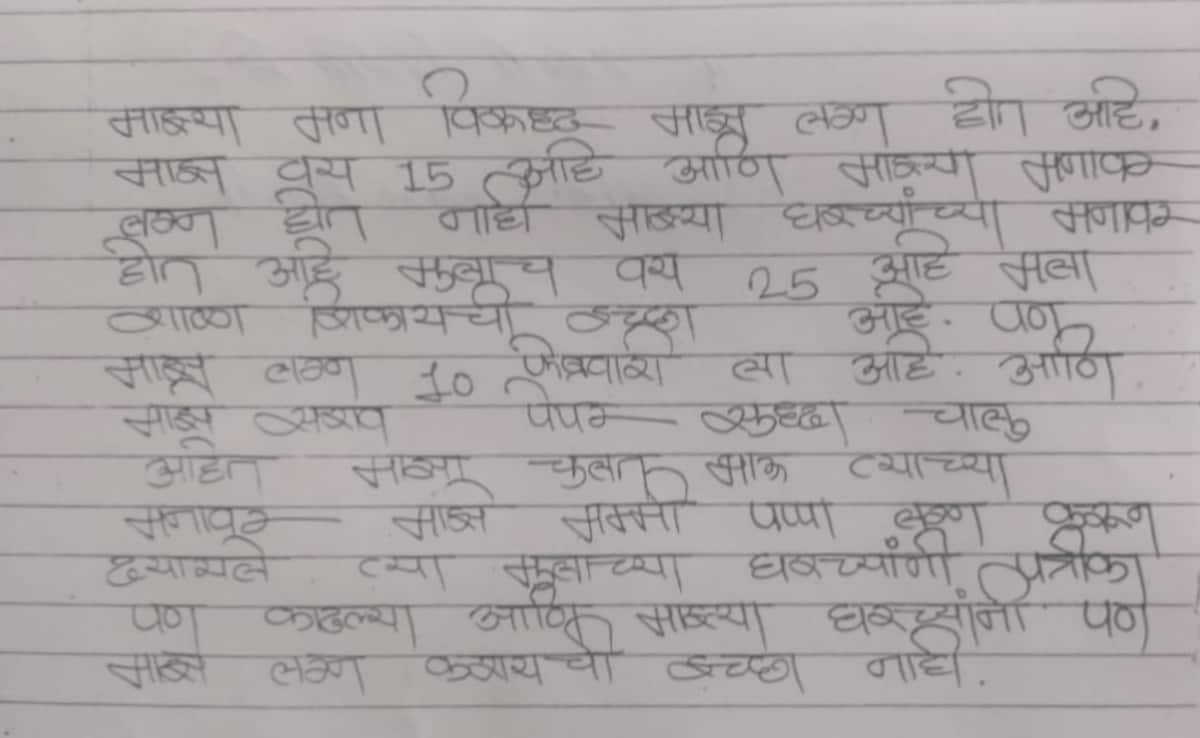 माझ्या मना विरुध्द माझ लग्न होत आहे.
माझ वय 15 आहे आणि माझ्या मनावर
लग्न होत नाही माझ्या घरच्यांच्या मनावर
होत आहे मुलाच वय 25 आहे मला
शाळा शिकायची इच्छा आहे. पण
माझ लग्न 10 फेब्रुवारी ला आहे. आणि
माझे सराव पेपर सुध्दा चालु
आहेत माझा चुलत भाऊ त्याच्या
मनावर माझे मम्मी पप्पा लग्न करून
त्या मुलाच्या घरच्यांनी पत्रीका
पण काढल्या आणि माझ्या घरच्यांना पण
माझ लग्न करायची इच्छा नाही.